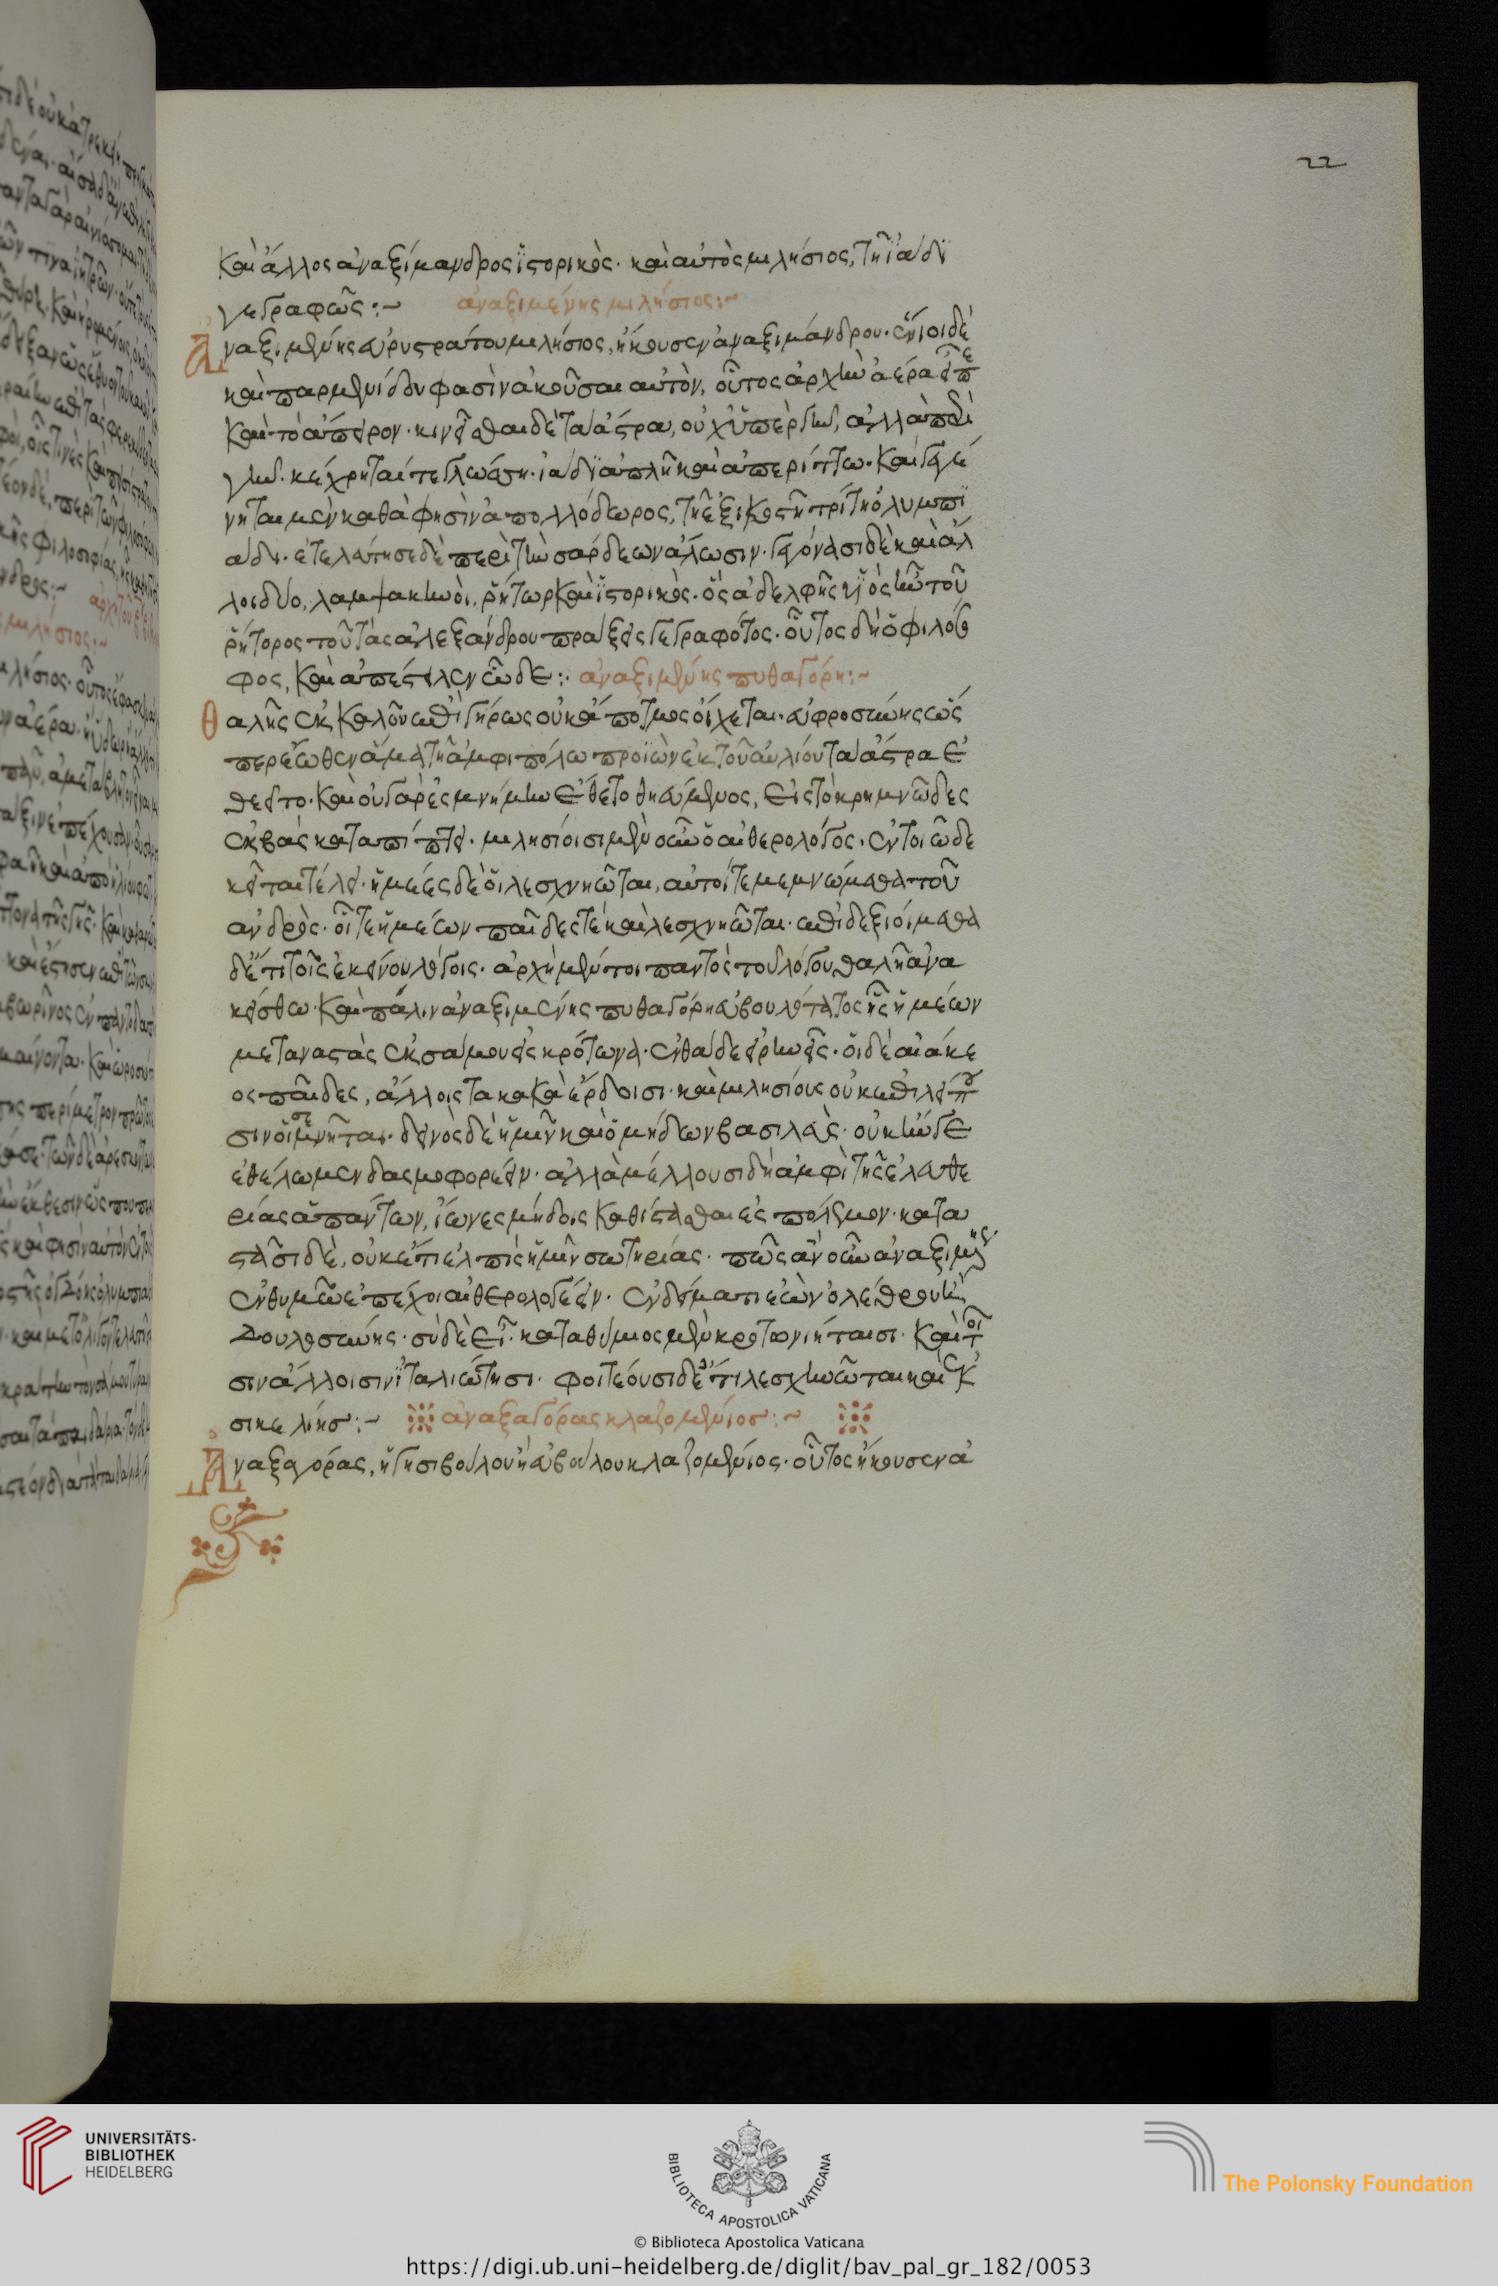 22
καὶ ἄλλος ἀναξίμανδρος ἱστορικὸς· καὶ αὐτὸς μιλήσιος, τῆ ἰάδι
γεγραφῶς:~ ἀναξιμένης μιλήσιος:~
Ἀναξιμένης εὐρυστράτου μιλήσιος, ἤκουσεν ἀναξιμάνδρου· ἔνιοι δὲ
καὶ παρμενίδου φασὶν ἀκοῦσαι αὐτὸν, οὗτος ἀρχὴν ἀέρα εἶπε
καὶ τὸ ἄπειρον· κινεῖσθαι δὲ τὰ ἄστρα, οὐχ ὑπὲρ γῆν, ἀλλὰ περὶ
γῆν. κέχρηταί τε γλώσση ἰάδι ἁπλῆ καὶ ἀπερίττω· καὶ γεγέ
νηται μὲν καθά φησὶν ἀπολλόδωρος, τῆ ἑξικοστῆ τρίτη ὀλυμπι
άδι· ἐτελεύτησε δὲ περὶ τὴν σάρδεων ἅλωσιν· γεγόνασι δὲ καὶ ἄλ
λοι δύο, λαμψακηνοὶ, ῥήτωρ καὶ ἱστορικὸς· ὃς ἀδελφῆς υἱὸς ἦν τοῦ
ῥήτορος τοῦ τὰς ἀλεξάνδρου πράξεις γεγραφότος· οὗτος δὴ ὁ φιλόσο
φος, καὶ ἀπέστειλεν ὧδε:· ἀναξιμένης πυθαγόρη:~
Θαλῆς ἐκ καλὸν ἐπὶ γήρως οὐκ ἄποτμος οἴχεται· εὐφροσύνης ἕως
περ ἔωθεν ἅμα τῆ ἀμφιπόλω προϊὼν ἐκ τοῦ αὐλίου τὰ ἄστρα ἐ
θεῖτο· καὶ οὐ γὰρ ἐς μνήμην ἔθετο θηεύμενος, εἰς τὸ κρημνῶδες
ἐκβὰς καταπίπτει· μιλησίοισι μέν οὖν ὁ αἰθερολόγος· ἐν τοιῶδε
κεῖται τέλει· ἡμεῖς δὲ οἱ λεσχηνῶται, αὐτοί τε μεμνώμεθα τοῦ
ἀνδρὸς· οἵ τε ἡμέων παῖδές τε καὶ λεσχηνῶται· ἐπιδεξιοίμεθα
δ' ἔτι τοῖς ἐκείνου λόγοις· ἀρχὴ μέν τοι παντὸς τοῦ λόγου θαλῆ ἀνα
κείσθω· καὶ πάλιν ἀναξιμένης πυθαγόρη εὐβουλότατος ἦς ἡμέων
μεταναστὰς ἐκ σάμου ἐς κρότωνα· ἐνθάδε εἰρηνεῖς· οἱ δὲ αἰάκε
ος παῖδες, ἄλλοις τα κακὰ ἔρδουσι· καὶ μιλησίους οὐκ ἐπιλείπου
σιν οἱ αἰσυμνῆται· δεινὸς δὲ ἡμῖν καὶ ὁ μήδων βασιλεὺς· οὐκ ἤν γε
ἐθέλωμεν δασμοφορέειν· ἀλλὰ μέλλουσι δὴ ἀμφὶ τῆς ἐλευθε
ρίας ἁπάντων, ἴωνες μήδοις καθίστασθαι ἐς πόλεμον· κατα
στᾶσι δὲ, οὐκέτι ἐλπὶς ἡμῖν σωτηρίας· πῶς ἂν οὖν ἀναξιμένης
ἐν θυμῶ ἐπέχοι αἰθερολογέειν· ἐν δείματι ἐὼν ὀλέθρου ἢ
δουλοσύνης· σὺ δὲ εἶ· καταθύμιος μὲν κροτωνιήταισι· καὶ τοῖ
σιν ἄλλοισιν ἰταλιώτησι· φοιτέουσι δέ τοι λεσχηνῶται καὶ ἐκ
σικελίης:~ ἀναξαγόρας κλαζομένιος:~
Ἀναξαγόρας, ἡγησιβούλου ἢ εὐβούλου κλαζομένιος· οὗτος ἤκουσεν ἀ
UNIVERSITÄTS-
BIBLIOTHEK
HEIDELBERG
BIBLIOTECA APOSTOLICA VATICANA
The Polonsky Foundation
© Biblioteca Apostolica Vaticana
https://digi.ub.uni-heidelberg.de/diglit/bav_pal_gr_182/0053